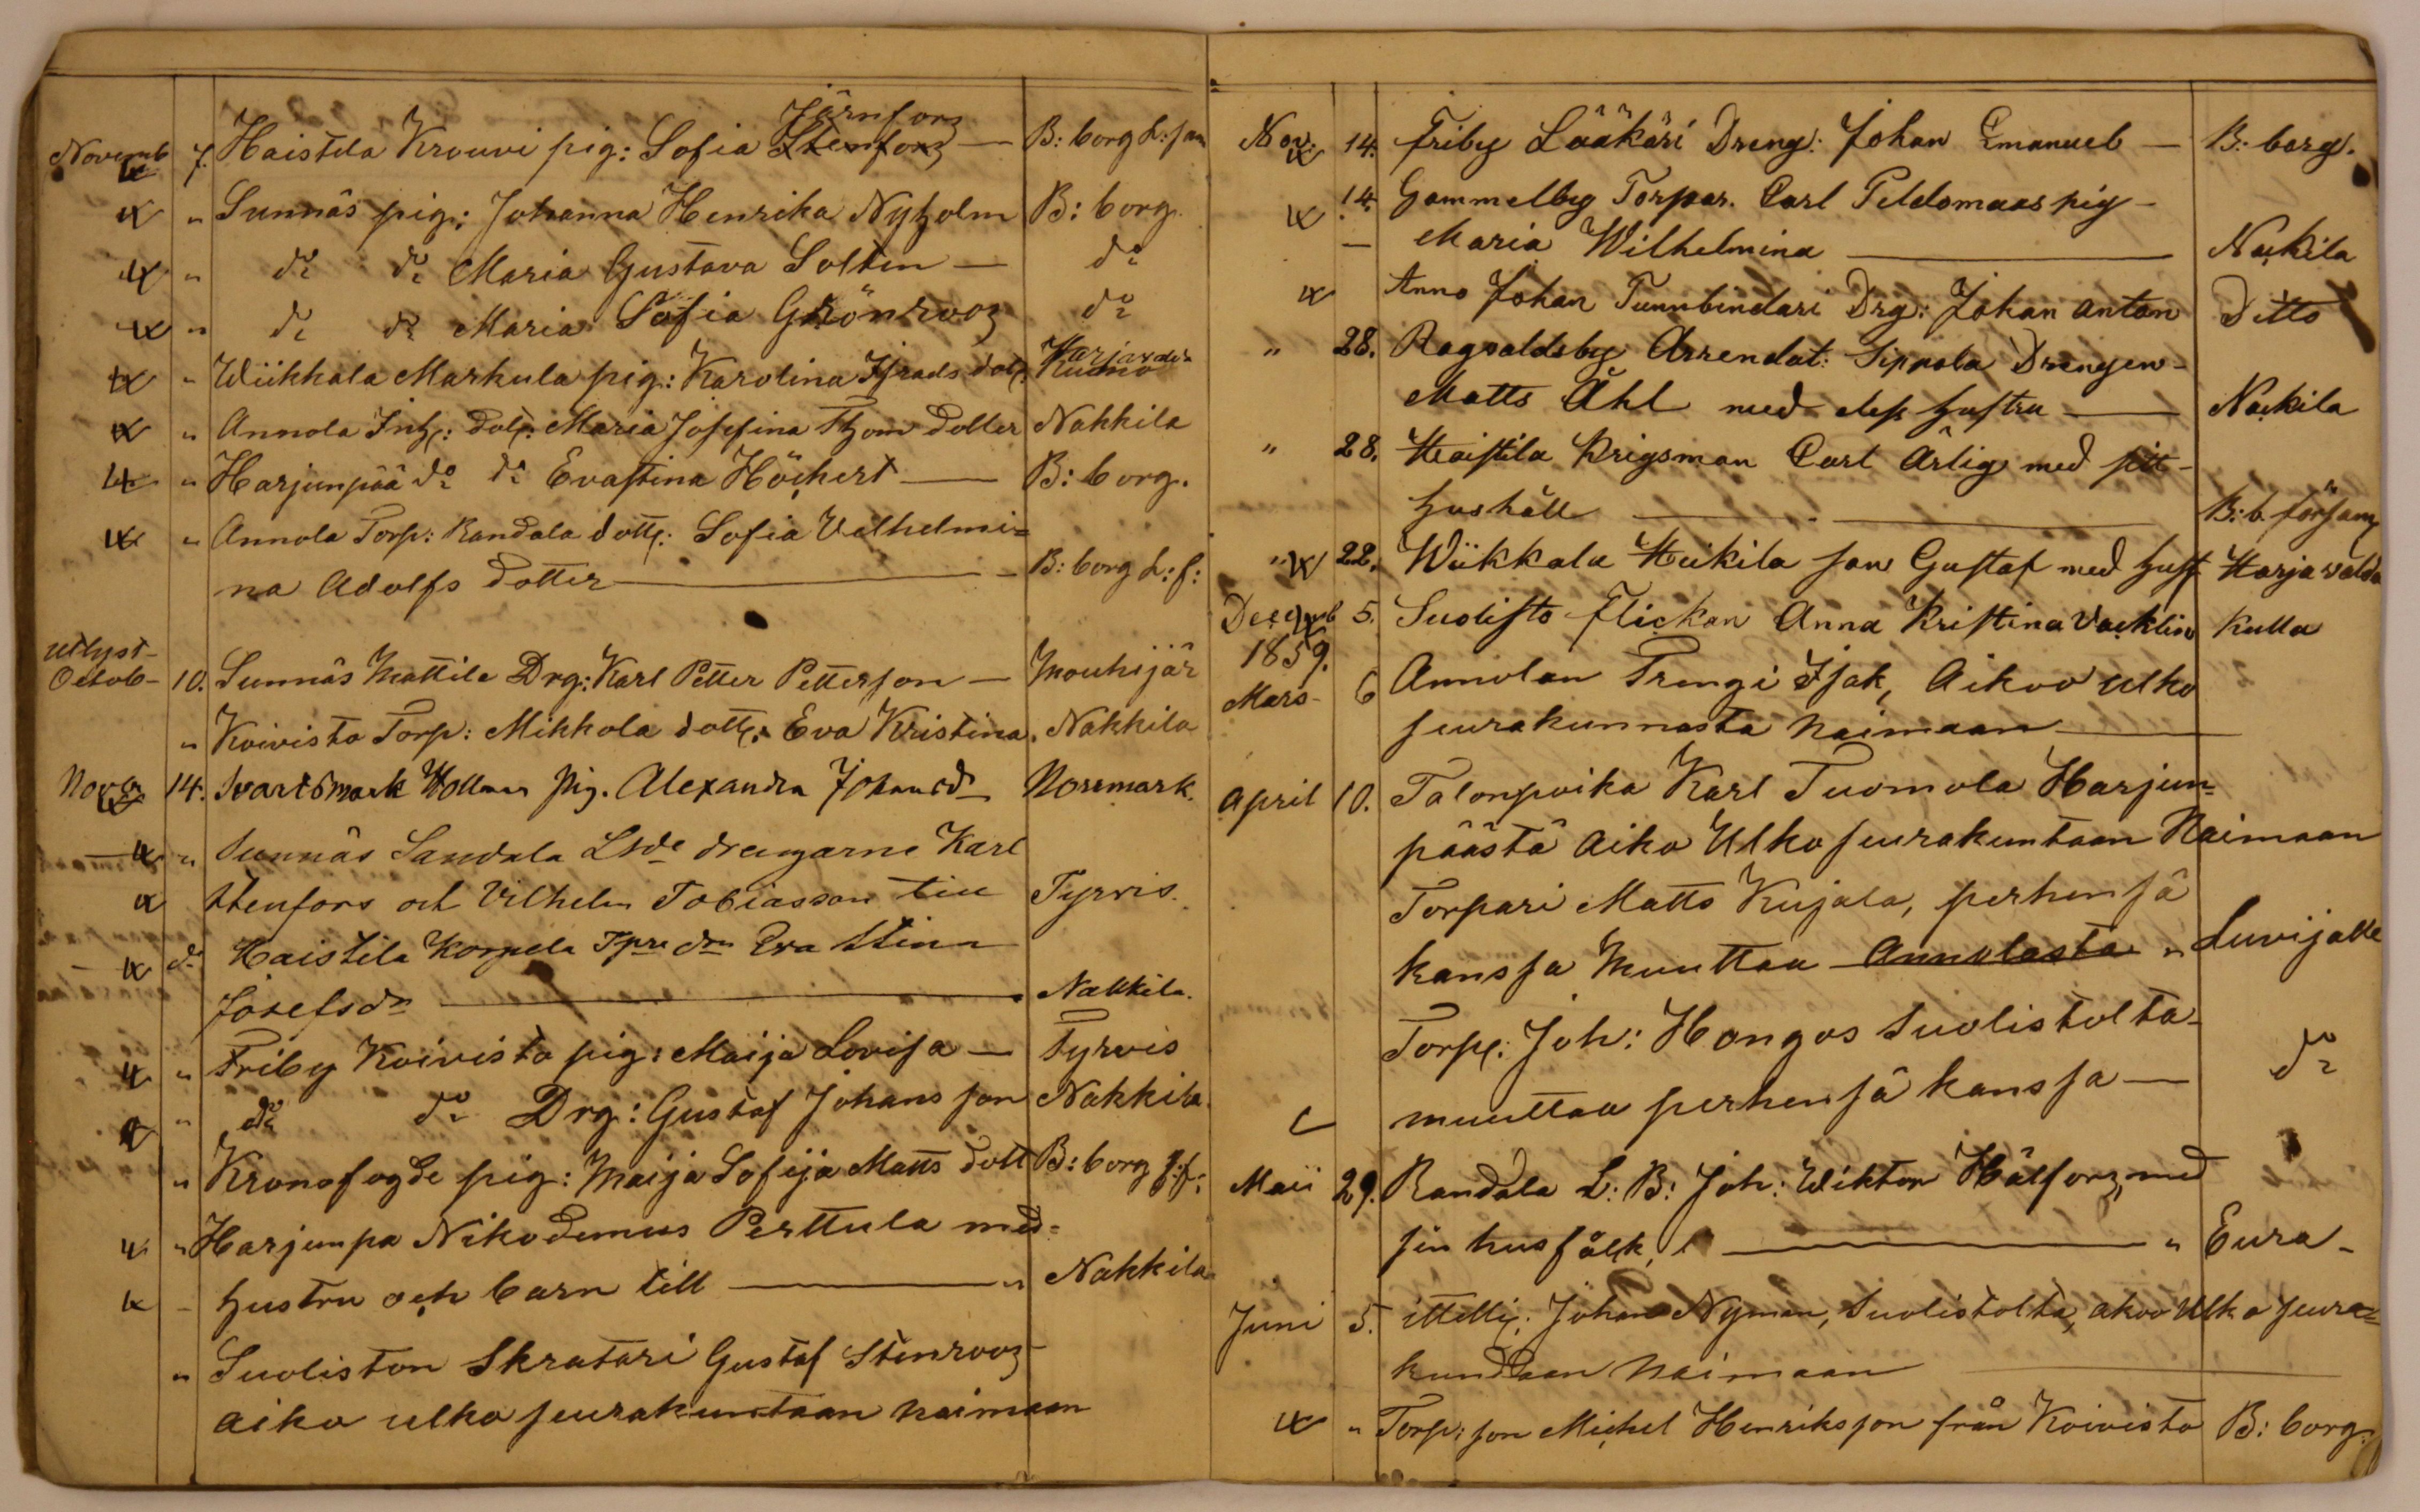 Järnforz
Novemb 7. Haistila Krouvi pig: Sofia Stenforz — B: borg L: fam
" Sunnäs pig: Johanna Henrika Nyholm B: borg.
" do do Maria Gustava Soltin — do
" do do Maria Sofia Grönrooz do
Harjavalda
" Wiikkala Markula pig: Karolina Israels dott:
" Annola Inh: dott: Maria Josefina Thom dotter Nakkila
" Harjunpää do do Evastina Höckert — B: borg.
" Annola Torp: Randala dott: Sofia Velhelmi=
na Adolfs dotter — B: borg L: f:
Utlyst-
Octob- 10. Sunnäs Mattila Drg: Karl Petter Petterson — Mouhijär
" Koivisto Torp: Mikkola dott: Eva Kristina. Nakkila
Nov 14. Svartsmark pig. Alexandra Johansd Norrmark.
" Sunnäs Sandala drengarne Karl
Stenfors och Vilhelm Tobiasson till Tyrvis.
do Haistila Korpela dr Eva Stina
Josefsdr — Nakkila.
" Friby Koivisto pig: Maija Lovisa — Tyrvis
" do do Drg: Gustaf Johansson Nakkila.
" Kronofogde pig: Maija Sofija Matts dott B: borg L: f:
" Harjunpa Nikodemus Perttula med=
hustru och barn till — " Nakkila
" Suoliston Skratari Gustaf Stenrooz
aiko ulko seurakuntaan naimaan
Nov: 14. Friby Lääkäri Dreng: Johan Emanuel — B: borg.
14. Gammelby Torpar. Carl Peldomaas pig —
— Maria Wilhelmina — Nackila
Anno Johan Tunnbindari Drg: Johan Anton Ditto
" 28. Ragvaldsby Arrendat: Sippola Drengen —
Matts Åhl med dess hustru — Nackila
" 28. Haistila Krigsman Carl Ärlig med sitt —
hushåll — B: b. försam
" 22. Wiikkala Heikila son Gustaf med hust Harjavalda
Decemb 5. Suolisto Flickan Anna Kristina Vacklin Kulla
1859.
Mars- 6 Annolan Trengi Isak, Aikoo ulko
seurakunnasta naimaan —
April 10. Talonpoika Karl Tuomola Harjun=
päästä aiko Ulko seurakuntaan Naimaan
Torpari Matts Kujala, perhensä
kanssa muuttaa Annolasta " Luvijalle
Torp: Joh: Hongos Suolistolta-
muuttaa perhensä kanssa — do
Maii 29. Randala L: B: Joh: Wiktor Hälforz, med
sin husfålk, — " Eura-
Juni 5. ittelli: Johan Nyman, Suolistolta, akoo Ulko seura=
kundaan naimaan —
" Torp: son Michel Henriksson från Koivisto B: borg.